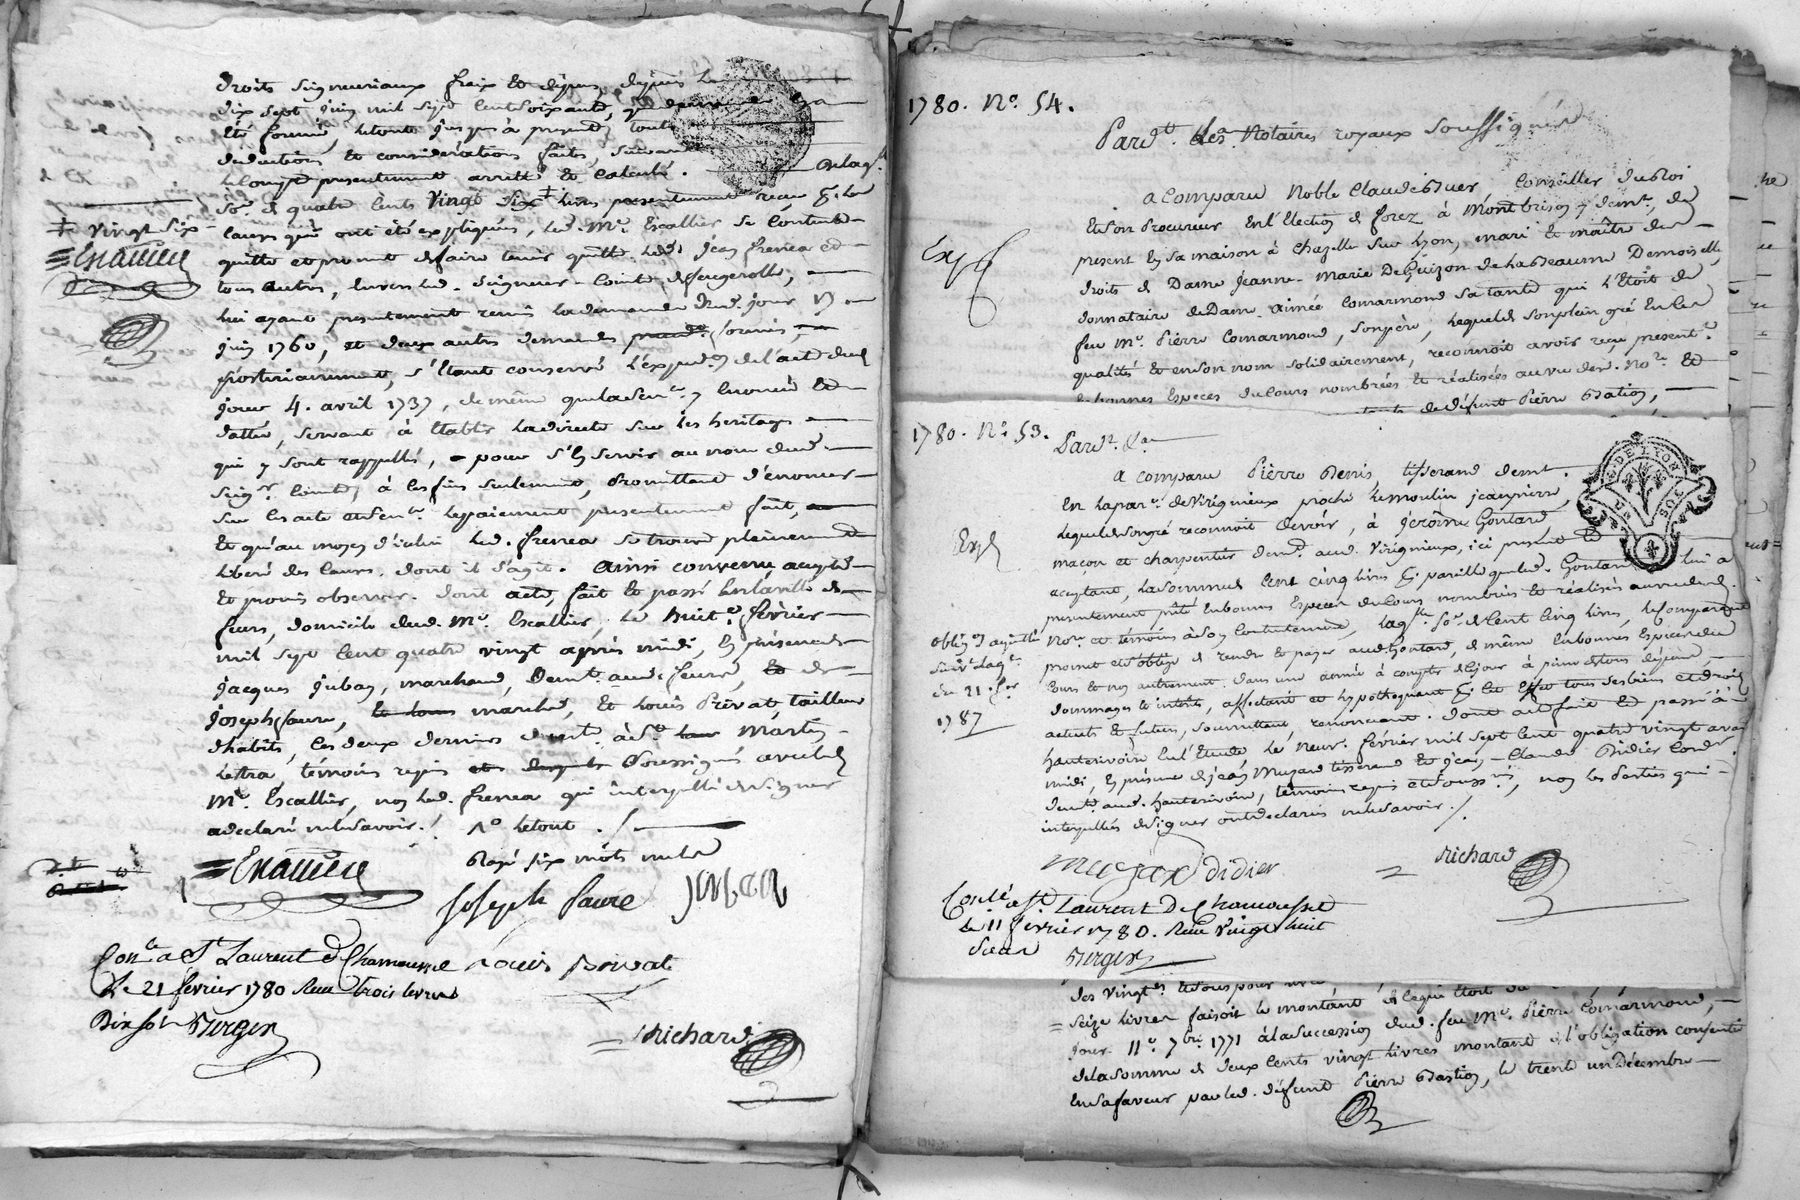 droits seigneuriaux fraix et dépens, depuis le
dix sept juin mil sept cent soixante, que demande en a
été formée, le tout jusques à present, toutes
déductions et considérations faites, suivant
le compte presentement arretté et calculé. De laq.lle
so.e de quatre cents vingt six livres presentement reçue
causes qui ont été expliquées, led. M.e Escallier se contente
quitte et promet de faire tenir quitte led. Jean frenea et
tous autres, envers led. Seigneur Comte de feugerolle,
lui ayant presentement remis la demande dud. jour 17
juin 1760, et deux autres demandes formées,
postérieurement, s'étant conservé l'exped.on de l'acte dud.
jour 4. avril 1737, de même que la sen.ce y énoncée et
dattée, servant à établir la directe sur les heritages
qui y sont rappellés, pour s'en servir au nom dud.
seig.r Comte, à ses fins seulement, promettant d'énoncer
sur les acte et sen.ce le paiement presentement fait,
et qu'au moyen d'icelui led. frenea se trouve pleinement
liberé des causes, dont il s'agit. Ainsi convenu accepté
et promis observer. Dont acte, fait et passé en la ville de
feurs, domicile dud. M.e Escallier, le huit.e février
mil sept cent quatre vingt après midi, En présence de
jacques juban, marchand, dem.t aud. feurs, de
joseph faure, marchand, et Louis Privat, tailleur
d'habits, les deux derniers dem.t à S.t Martin
Lestra, témoins requis soussignés avec led.
M.e Escallier, non led. frenea qui interpellé de signer
a declaré ne le savoir./. 
Rayé six mots nuls
‡ vingt six
Escallier
Escallier
joseph faure
juban
Con.lé a S.t Laurent de Chamousset
Le 21 février 1780 Reçu trois livres
Dix sols Berger
Louis Privat
Richard
1780. N.o 54.
Pard.t les Notaires royaux soussignés
a comparu Noble Claude Buer, Conseiller du Roi
et son Procureur en l'Election de forez à Montbrison y dem.t, de
present en sa maison à Chazelle sur Lyon, mari et maître des
droits de Dame Jeanne-Marie DeGuizon de la Beaume Demoiselle,
donnataire de Dame Aimée Comarmond sa tante qui l'Etoit de
feu M.e Pierre Comarmond, son père, lequel de son plein gré en les
qualités et en son nom solidairement, reconnoit avoir reçu present.t
en bonnes Especes du cours nombrées et réalisées au vu desd. No.res et
de défunt Pierre Bation,
Exp
1780. N.o 53.
Pard.t &a
a comparu Pierre Denis, tisserand dem.t
en la par.se de Virignieux proche le moulin jeanpierre,
lequel de son gré reconnoit devoir, à Jerôme Goutard,
maçon et charpentier dem.t aud. Virignieux, ici present et
acceptant, la somme de Cent cinq livres pareille que led. Goutard lui a
presentement prêté en bonnes Especes du cours nombrées et réalisées au vu desd.
No.re et témoins à son contentement, laq.lle so.e de Cent cinq livres, le comparant
promet et s'oblige de rendre et payer aud. Goutard, de même en bonnes Especes du
cours et non autrement dans une année à compter de ce jour à peine de tous dépens,
dommages et intérêts, affectant et hypothequant à cet effet tous ses biens et droits
actuels et futurs, soumettant, renonceant. Dont acte fait et passé à
hauterivoire en l'Etude le neuv. février mil sept cent quatre vingt avant
midi, En présence de jean Murard tisserand et jean-Claude Didier
dem.t aud. hauterivoire, témoins requis et souss.nés, non les parties qui
interpellés de signer ont declaré ne le savoir./.
Exp
oblig.on aquittée
suiv.t lad. q.ce
du 21. f.er
1787
Didier
Richard
Con.lé a S.t Laurent de Chamousset
le 11 février 1780. Reçu Vingt huit
Sols Berger
DE LYON
UN SOL
des vingt.es
seize livres faisoit le montant de ce qui étoit dû
jour 11.e 7.bre 1771 à la Succession dud. feu M.e Pierre Comarmond,
de la somme de deux cents vingt livres montant de l'obligation consentie
en sa faveur par led. défunt Pierre Bation, le trente un Décembre